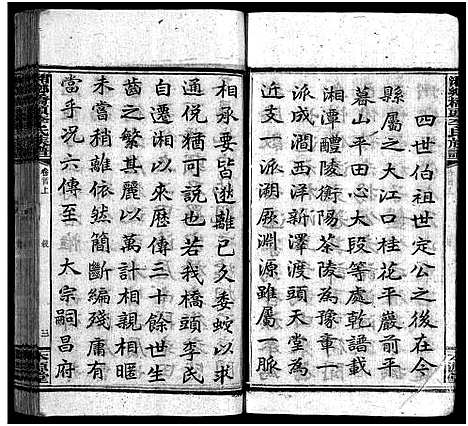 四世伯祖世定公之後在今
縣屬之大江口桂花平嚴前平
暮山平田心大段等處乾譜載
湘潭醴陵衡陽茶陵為豫章一
派成澗西洋新澤渡天堂為
近支一派溯厥淵源雖屬一脈
相承要皆逖離已久委蛇以求
通倪猶可說也若我橋頭李氏
自遷湘以來歷傳三十餘世生
齒之繁其麗以萬計相親相暱
未嘗稍離依然簡斷編殘庸有
當乎況六傳至 大宗嗣昌府
卷首上
三